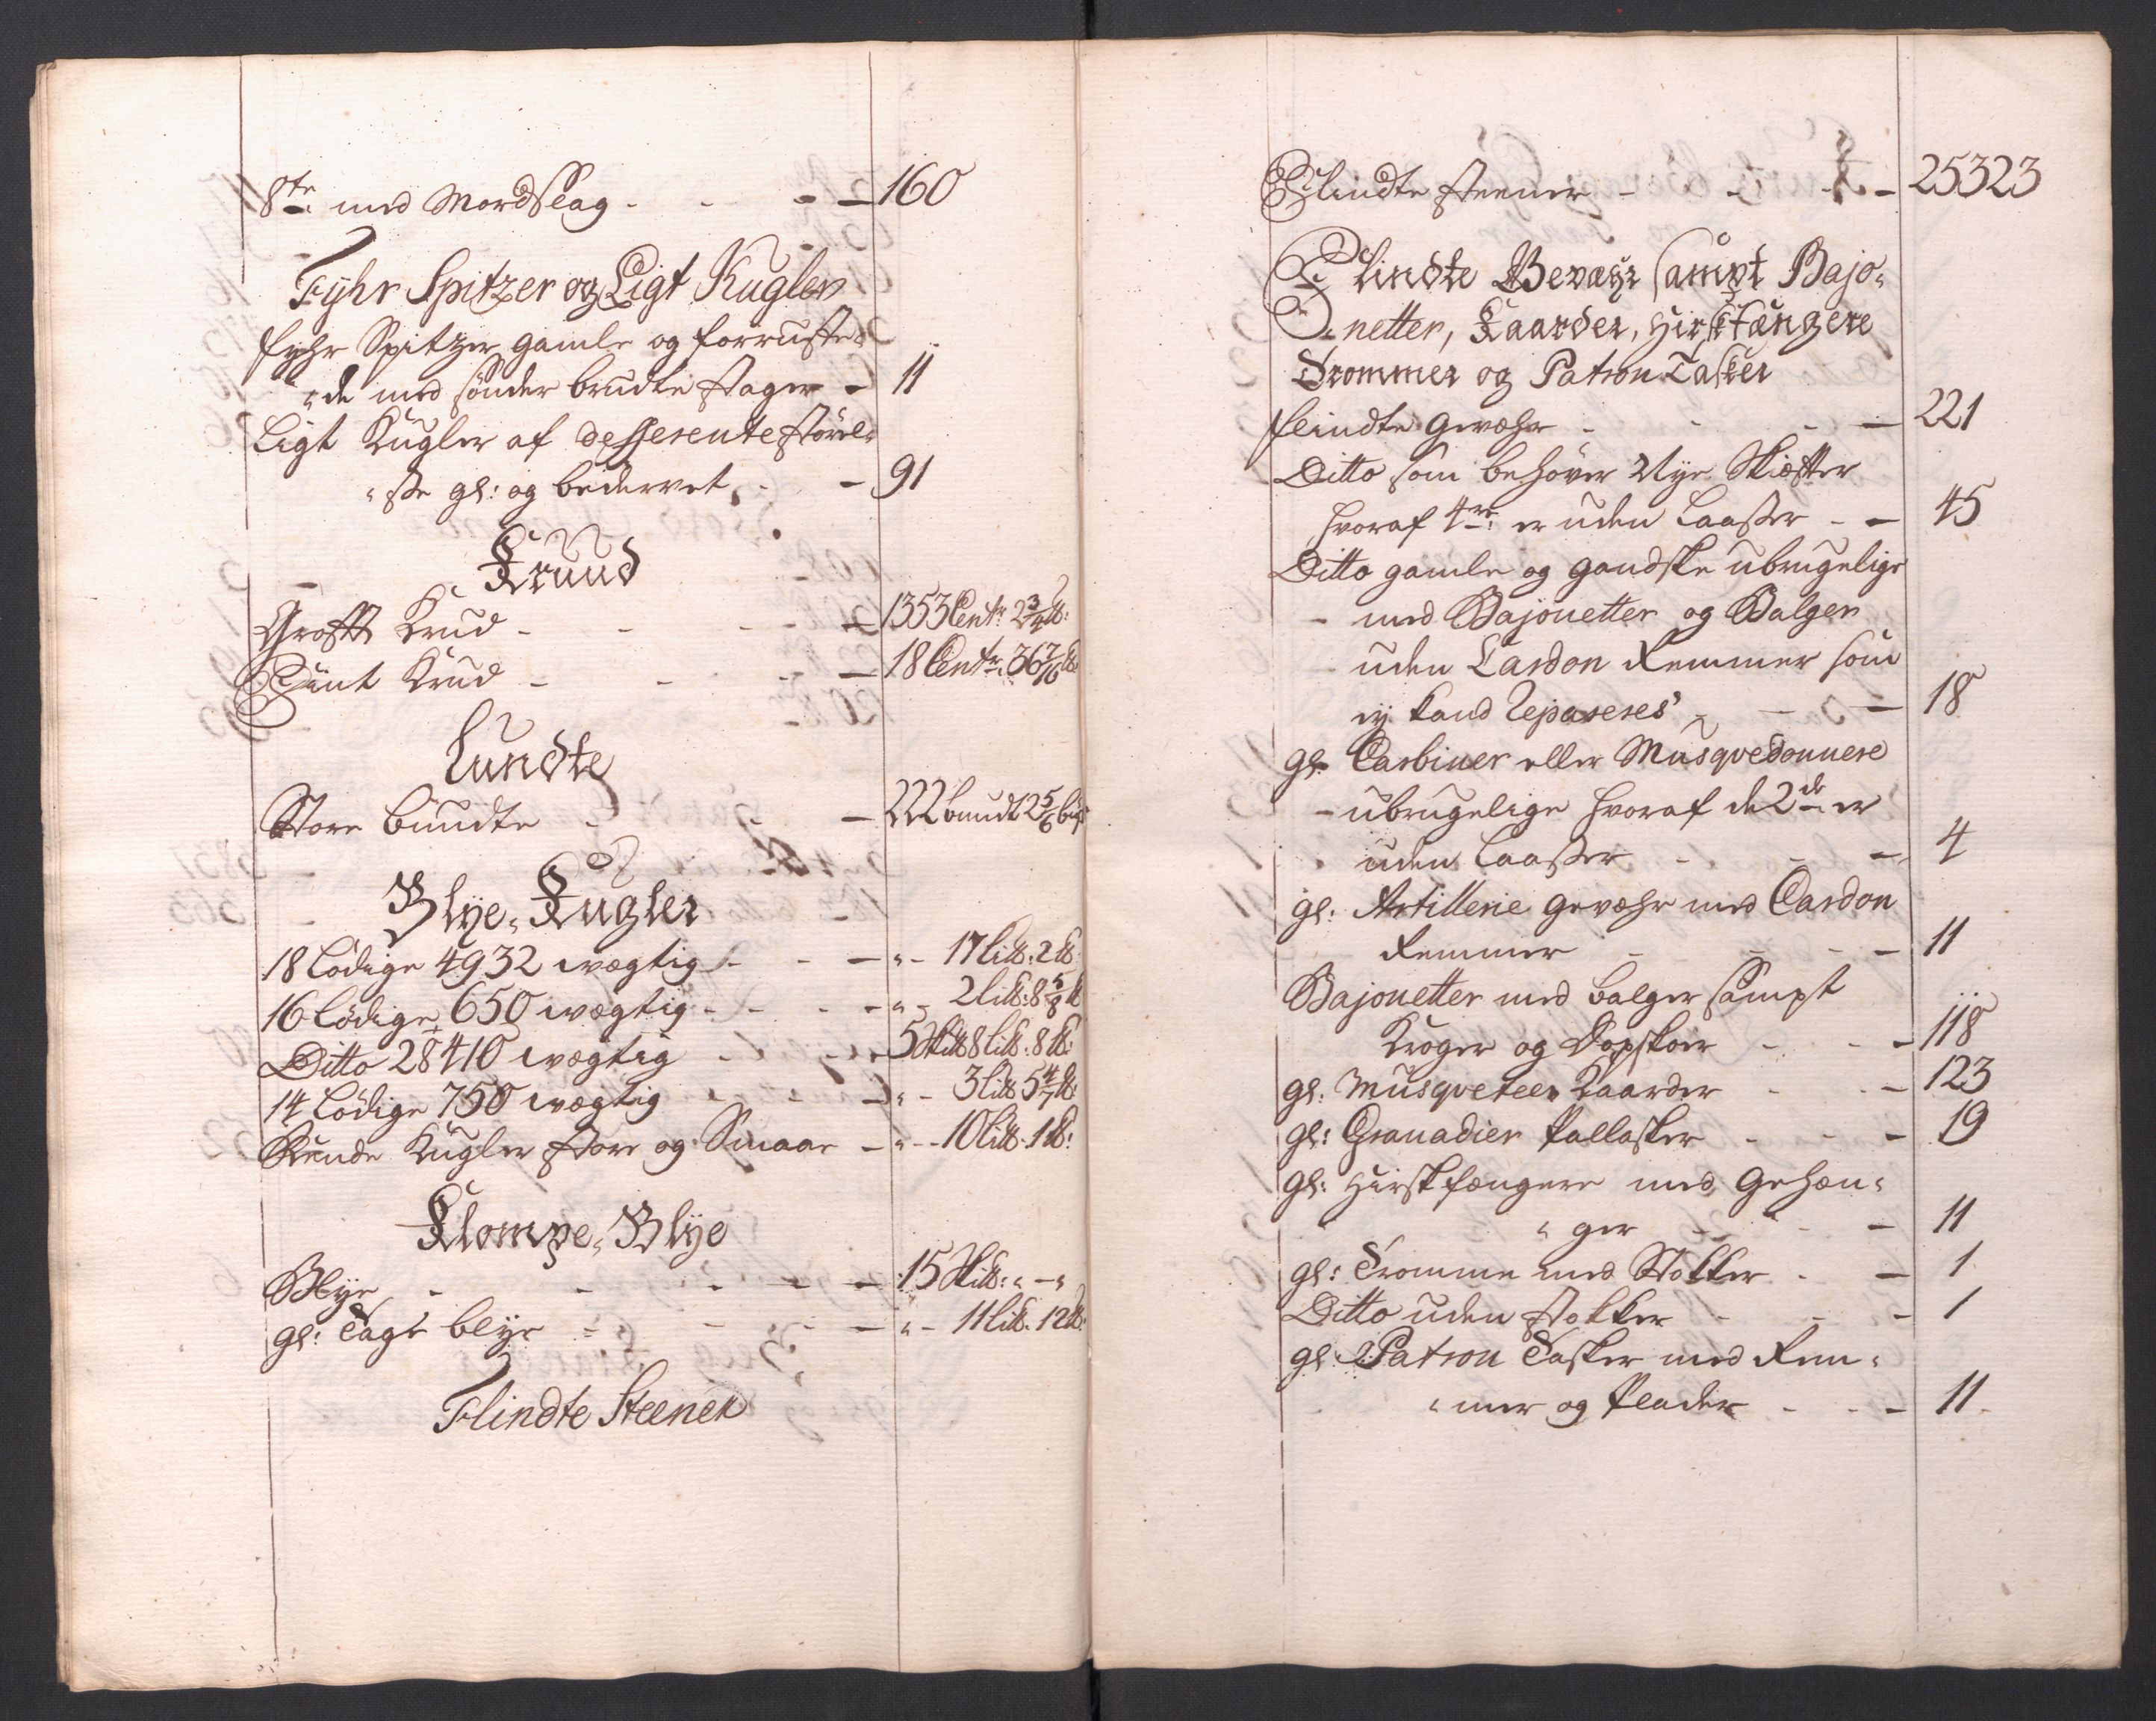 8te med Mordslag - - - 160
Fyhr Spitzer og Ligt Kugler
fyhr Spitzer gamle og forruste=
=de med sönder brudte stager - 11
Ligt Kugler af defferente störel=
=sse gl: og bedervet - - 91
Kruud
Groft Krud - - - 1353 Centr 2 3/4 ℔:
Fiint Krud - - - 18 Centr: 36 7/16 ℔:
Lundte
Store bundte - - - 222 bundt 2 5/6
Blye=Kugler
18 Lödige 4932 wægtig - - - " - 17 Li℔: 2 ℔:
16 Lödige 650 wægtig - - - " - 2 Li℔: 8 5/8 ℔
Ditto 28410 wægtig - - - 5 Ski℔ 8 Li℔: 8 ℔:
14 Lödige 750 wægtig - - - " - 3 Li℔ 5 4/7 ℔:
Rende Kugler store og Smaae - " - 10 Li℔. 1 ℔:
Klompe=Blye
Blye - - - 15 Ski℔: " - "
gl: Tagt blye - - - " - 11 Li℔. 12 ℔:
Flindte Steener
Flindte steener - - - 25323
Flindte Bevæhr sampt Bajo=
=netter, Kaarder, Hirskfængere
Trommer og Patron Tasker
flindte Gevæhr - - - 221
Ditto som behöver Nye Skiæfter
hvoraf 4re: er uden Laasser - - 45
Ditto gamle og gandske ubrugelige
- med Bajonetter og Balger
uden Cardon Remmer som
ey kand Repareres - - 18
gl: Carbiner eller Musqvedonnere
- ubrugelige hvoraf de 2de er
uden Laasser - - - 4
gl: Artillerie Gevæhr med Cardon
Remmer - - - 11
Bajonetter med balger sampt
Kroger og Dopskoer - - - 118
gl: Musqveteer Kaarder - - 123
gl: Granadier Pallasker - - - 19
gl: Hirskfængere med Gehæn=
=ger - - - 11
gl: Tromme med Stokker - - 1
Ditto uden stokker - - - 1
gl: Patron Tasker med Rem=
=mer og Plader - - - 11